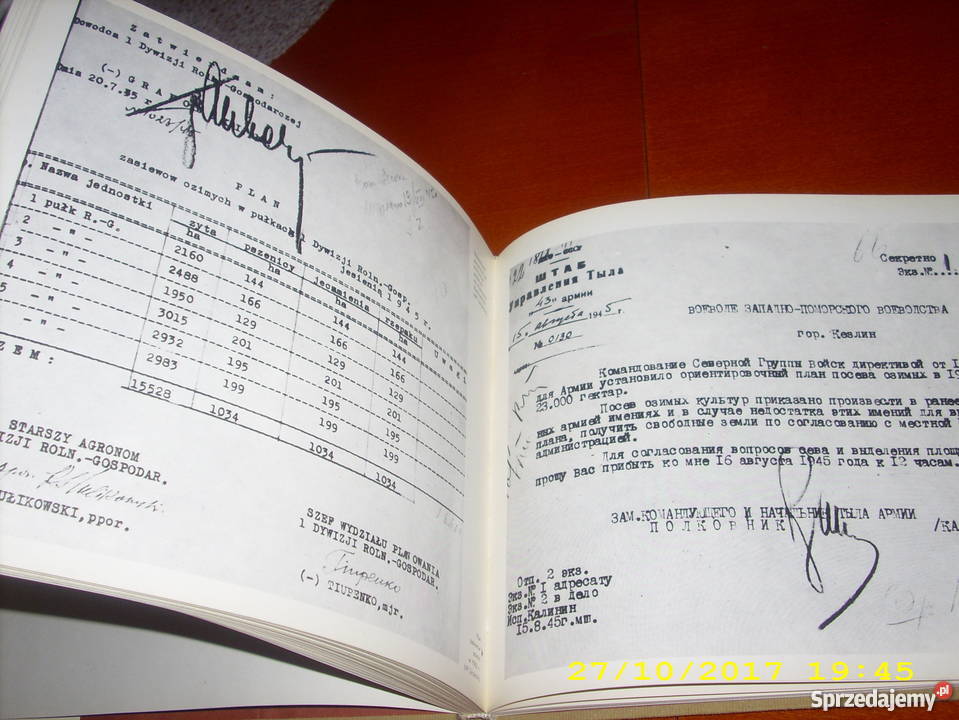 Zatwierdzam:
Dowódca 1 Dywizji Roln.-Gospodarczej
(-) GRABO
Dnia 20.7.35 r.
PLAN
zasiewów ozimych w pułkach 1 Dywizji Roln.-Gosp.
jesienią 1945 r.
Nazwa jednostki żyta ha pszenicy ha jęczmienia ha rzepaku ha Uwagi
1 pułk R.-G. 2160 144 144 144
2 -"- 2488 166 166 166
3 -"- 1950 129 129 129
4 -"- 3015 201 201 201
5 -"- 2932 195 195 195
-"- 2983 199 199 199
ZEM: 15528 1034 1034 1034
STARSZY AGRONOM
WIZJI ROLN.-GOSPODAR.
UŁIKOWSKI, ppor.
SZEF WYDZIAŁU PLANOWANIA
1 DYWIZJI ROLN.-GOSPODAR.
Tiupenko
(-) TIUPENKO, mjr.
ШТАБ
Управления Тыла
43й армии
15 августа 1945 г.
№ 0130
Секретно
Экз.№ 1
ВОЕВОДЕ ЗАПАДНО-ПОМОРСКОГО ВОЕВОДСТВА
гор. Кезлин
Командование Северной Группы Войск директивой от
для Армии установило ориентировочный план посева озимых в 19
23.000 гектар.
Посев озимых культур приказано произвести в ранее
ных армией имениях и в случае недостатка этих имений для
плана, получить свободные земли по согласованию с местной
администрацией.
Для согласования вопросов сева и выделения площа
прошу Вас прибыть ко мне 16 августа 1945 года к 12 часам.
ЗАМ.КОМАНДУЮЩЕГО И НАЧАЛЬНИК ТЫЛА АРМИИ
ПОЛКОВНИК /КА
Отп. 2 экз.
Экз.№ 1 адресату
Экз.№ 2 в дело
Исп.Калинин
15.8.45г.мш.
27/10/2017 19:45
Sprzedajemy.pl